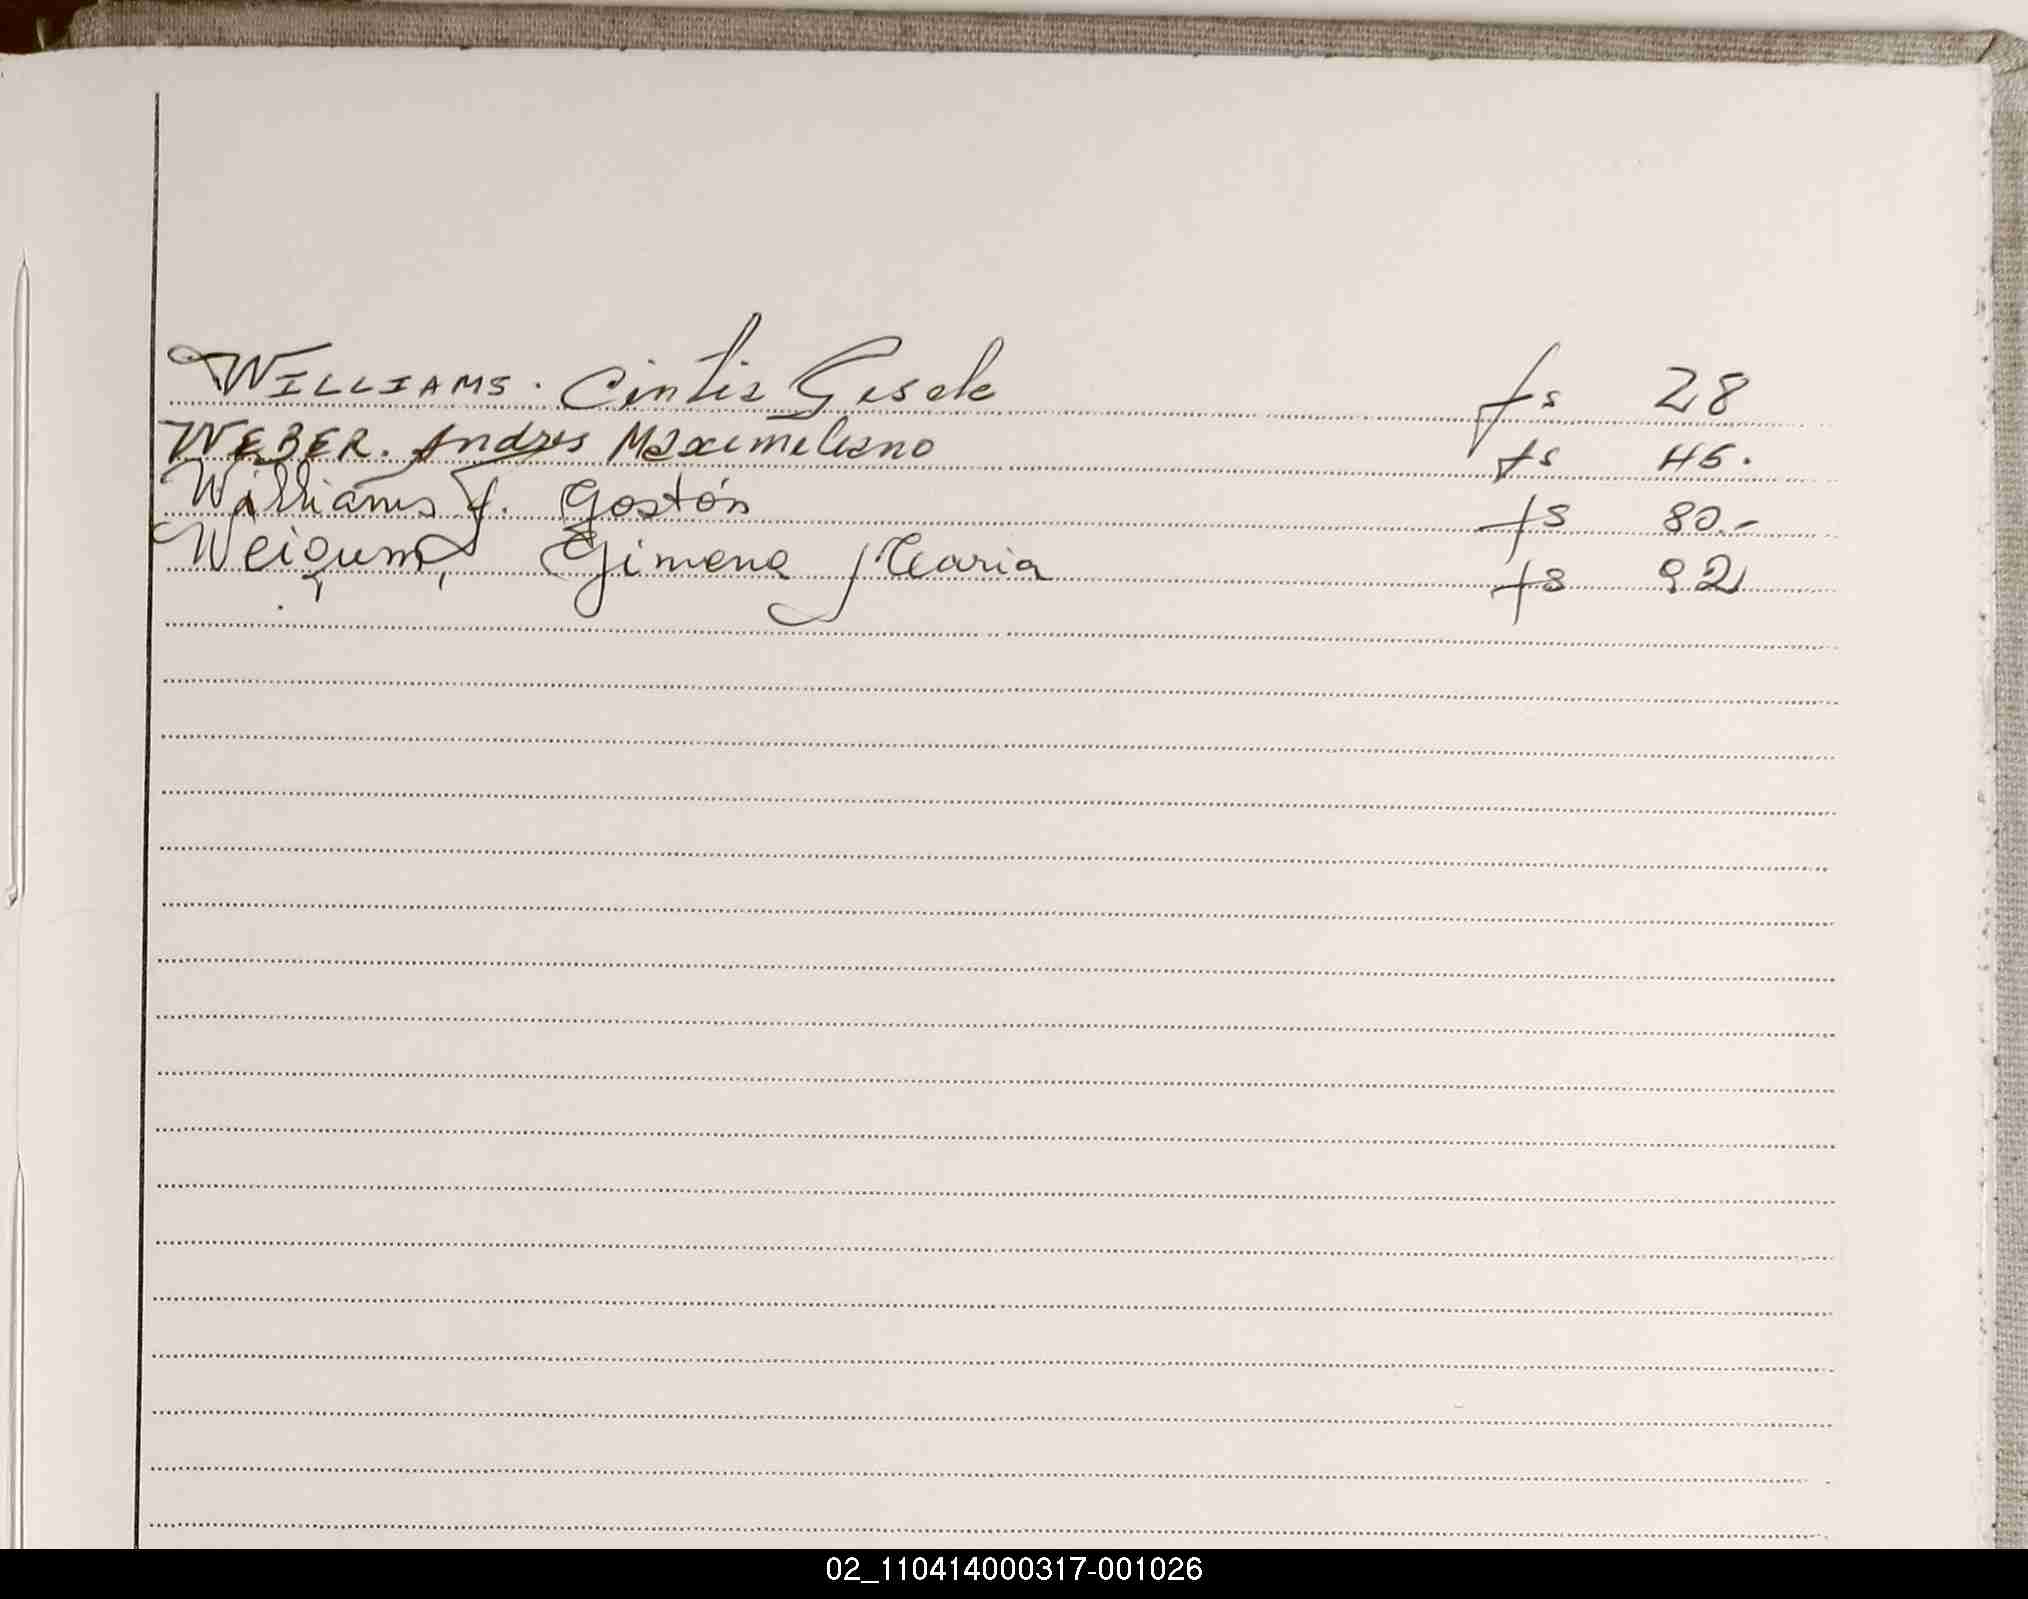 WILLIAMS. Cintia Gisele fs 28
WEBER. Andres Maximiliano fs 45.
Williams J. Gastón fs 80.-
Weigum, Gimena Maria fs 92
02_110414000317-001026